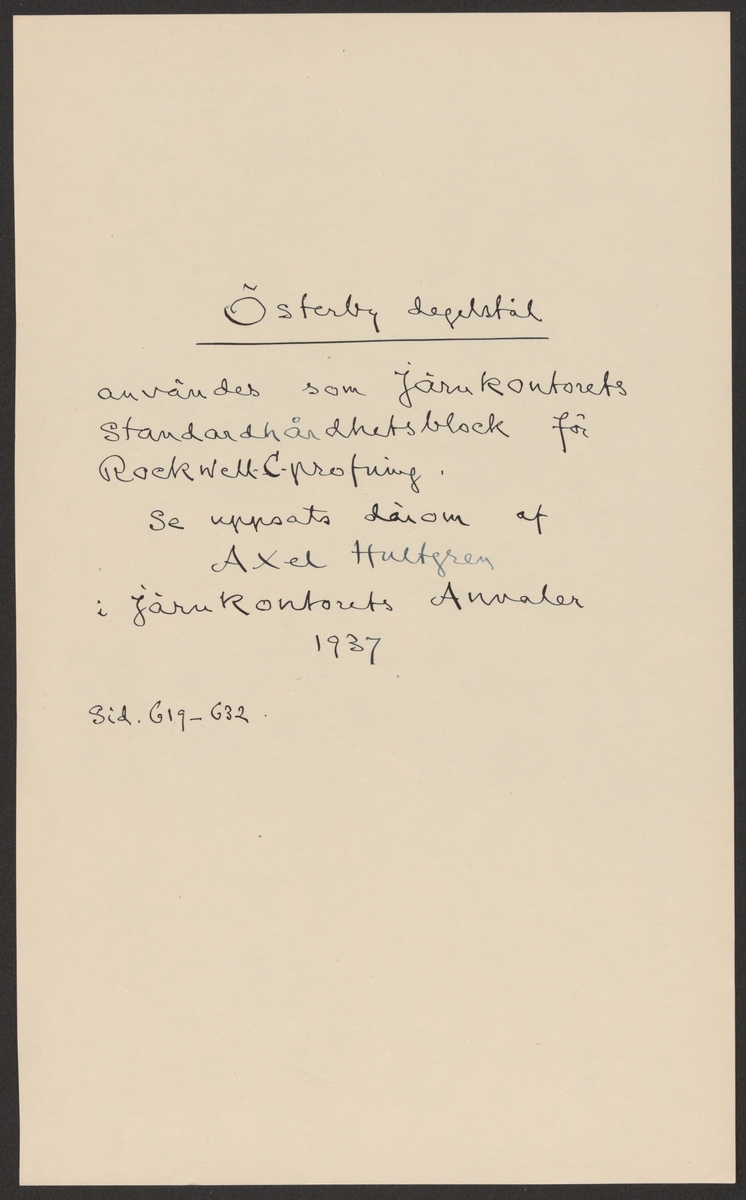 Österby degelstål
användes som Järnkontorets
Standardhårdhetsblock för
Rockwell-C-profning.
Se uppsats därom af
Axel Hultgren
i Järnkontorets Annaler
1937
Sid. 619-632.